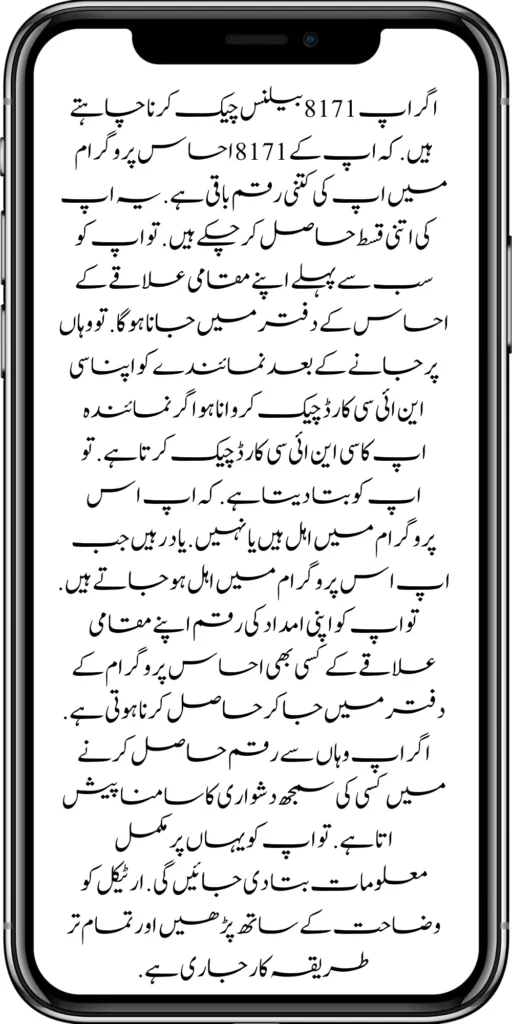 اگر اپ 8171 بیلنس چیک کرنا چاہتے
ہیں. کہ اپ کے 8171 احساس پروگرام
میں اپ کی کتنی رقم باقی ہے. یہ اپ
کی اتنی قسط حاصل کر چکے ہیں. تو اپ کو
سب سے پہلے اپنے مقامی علاقے کے
احساس کے دفتر میں جانا ہوگا. تو وہاں
پر جانے کے بعد نمائندے کو اپنا سی
این ائی سی کارڈ چیک کروانا ہو اگر نمائندہ
اپ کا سی این ائی سی کارڈ چیک کرتا ہے. تو
اپ کو بتا دیتا ہے. کہ اپ اس
پروگرام میں اہل ہیں یا نہیں. یاد رہیں جب
اپ اس پروگرام میں اہل ہو جاتے ہیں.
تو اپ کو اپنی امداد کی رقم اپنے مقامی
علاقے کے کسی بھی احساس پروگرام کے
دفتر میں جا کر حاصل کرنا ہوتی ہے.
اگر اپ وہاں سے رقم حاصل کرنے
میں کسی کی سمجھ دشواری کا سامنا پیش
اتا ہے. تو اپ کو یہاں پر مکمل
معلومات بتا دی جائیں گی. ارٹیکل کو
وضاحت کے ساتھ پڑھیں اور تمام تر
طریقہ کار جاری ہے.